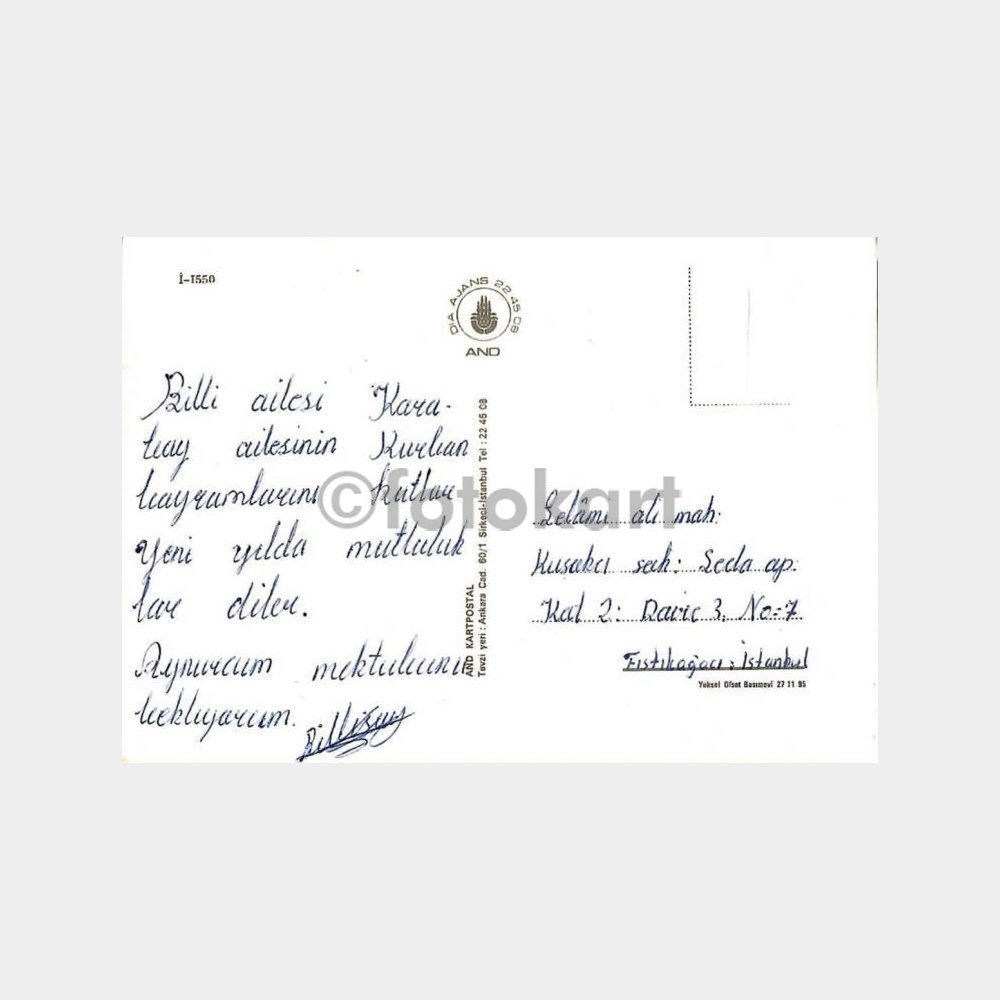 İ-1550
DİA AJANS 22 45 08
AND
Billi ailesi Kara-
bay ailesinin Kurban
bayramlarını kutlar
Yeni yılda mutluluk
lar diler.
Aynurcum mektubunu
bekliyorum.
AND KARTPOSTAL
Tevzi yeri : Ankara Cad. 60/1 Sirkeci-İstanbul Tel : 22 45 08
Selâmi ali mah.
Kuşakcı sok: Seda ap.
Kat 2: Daire 3. No=7
Fıstıkağacı : İstanbul
Yüksel Ofset Basımevi 27 11 95
©fotokart